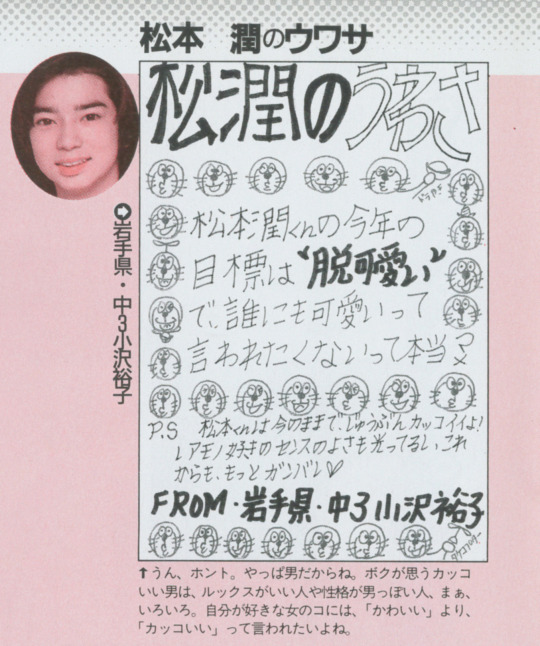 松本 潤のウワサ
松潤のうわさ
ドラやき
松本潤くんの今年の
目標は“脱可愛い”
で、誰にも可愛いって
言われたくないって本当??
P.S 松本くんは今のままで、じゅうぶんカッコイイよ!
レアモノ好きのセンスのよさも光ってるし、これ
からも、もっとガンバレ♡
FROM・岩手県・中3小沢裕子
タケコプター
➡岩手県・中3小沢裕子
⬆うん、ホント。やっぱ男だからね。ボクが思うカッコ
いい男は、ルックスがいい人や性格が男っぽい人、まぁ、
いろいろ。自分が好きな女のコには、「かわいい」より、
「カッコいい」って言われたいよね。